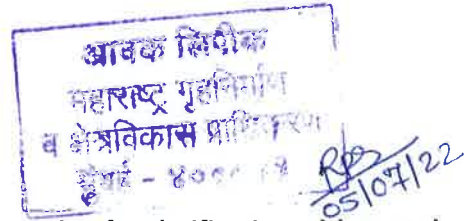 आवक लिपीक
महाराष्ट्र गृहनिर्माण
व क्षेत्रविकास प्राधिकरण
मुंबई - ४०००
05/07/22